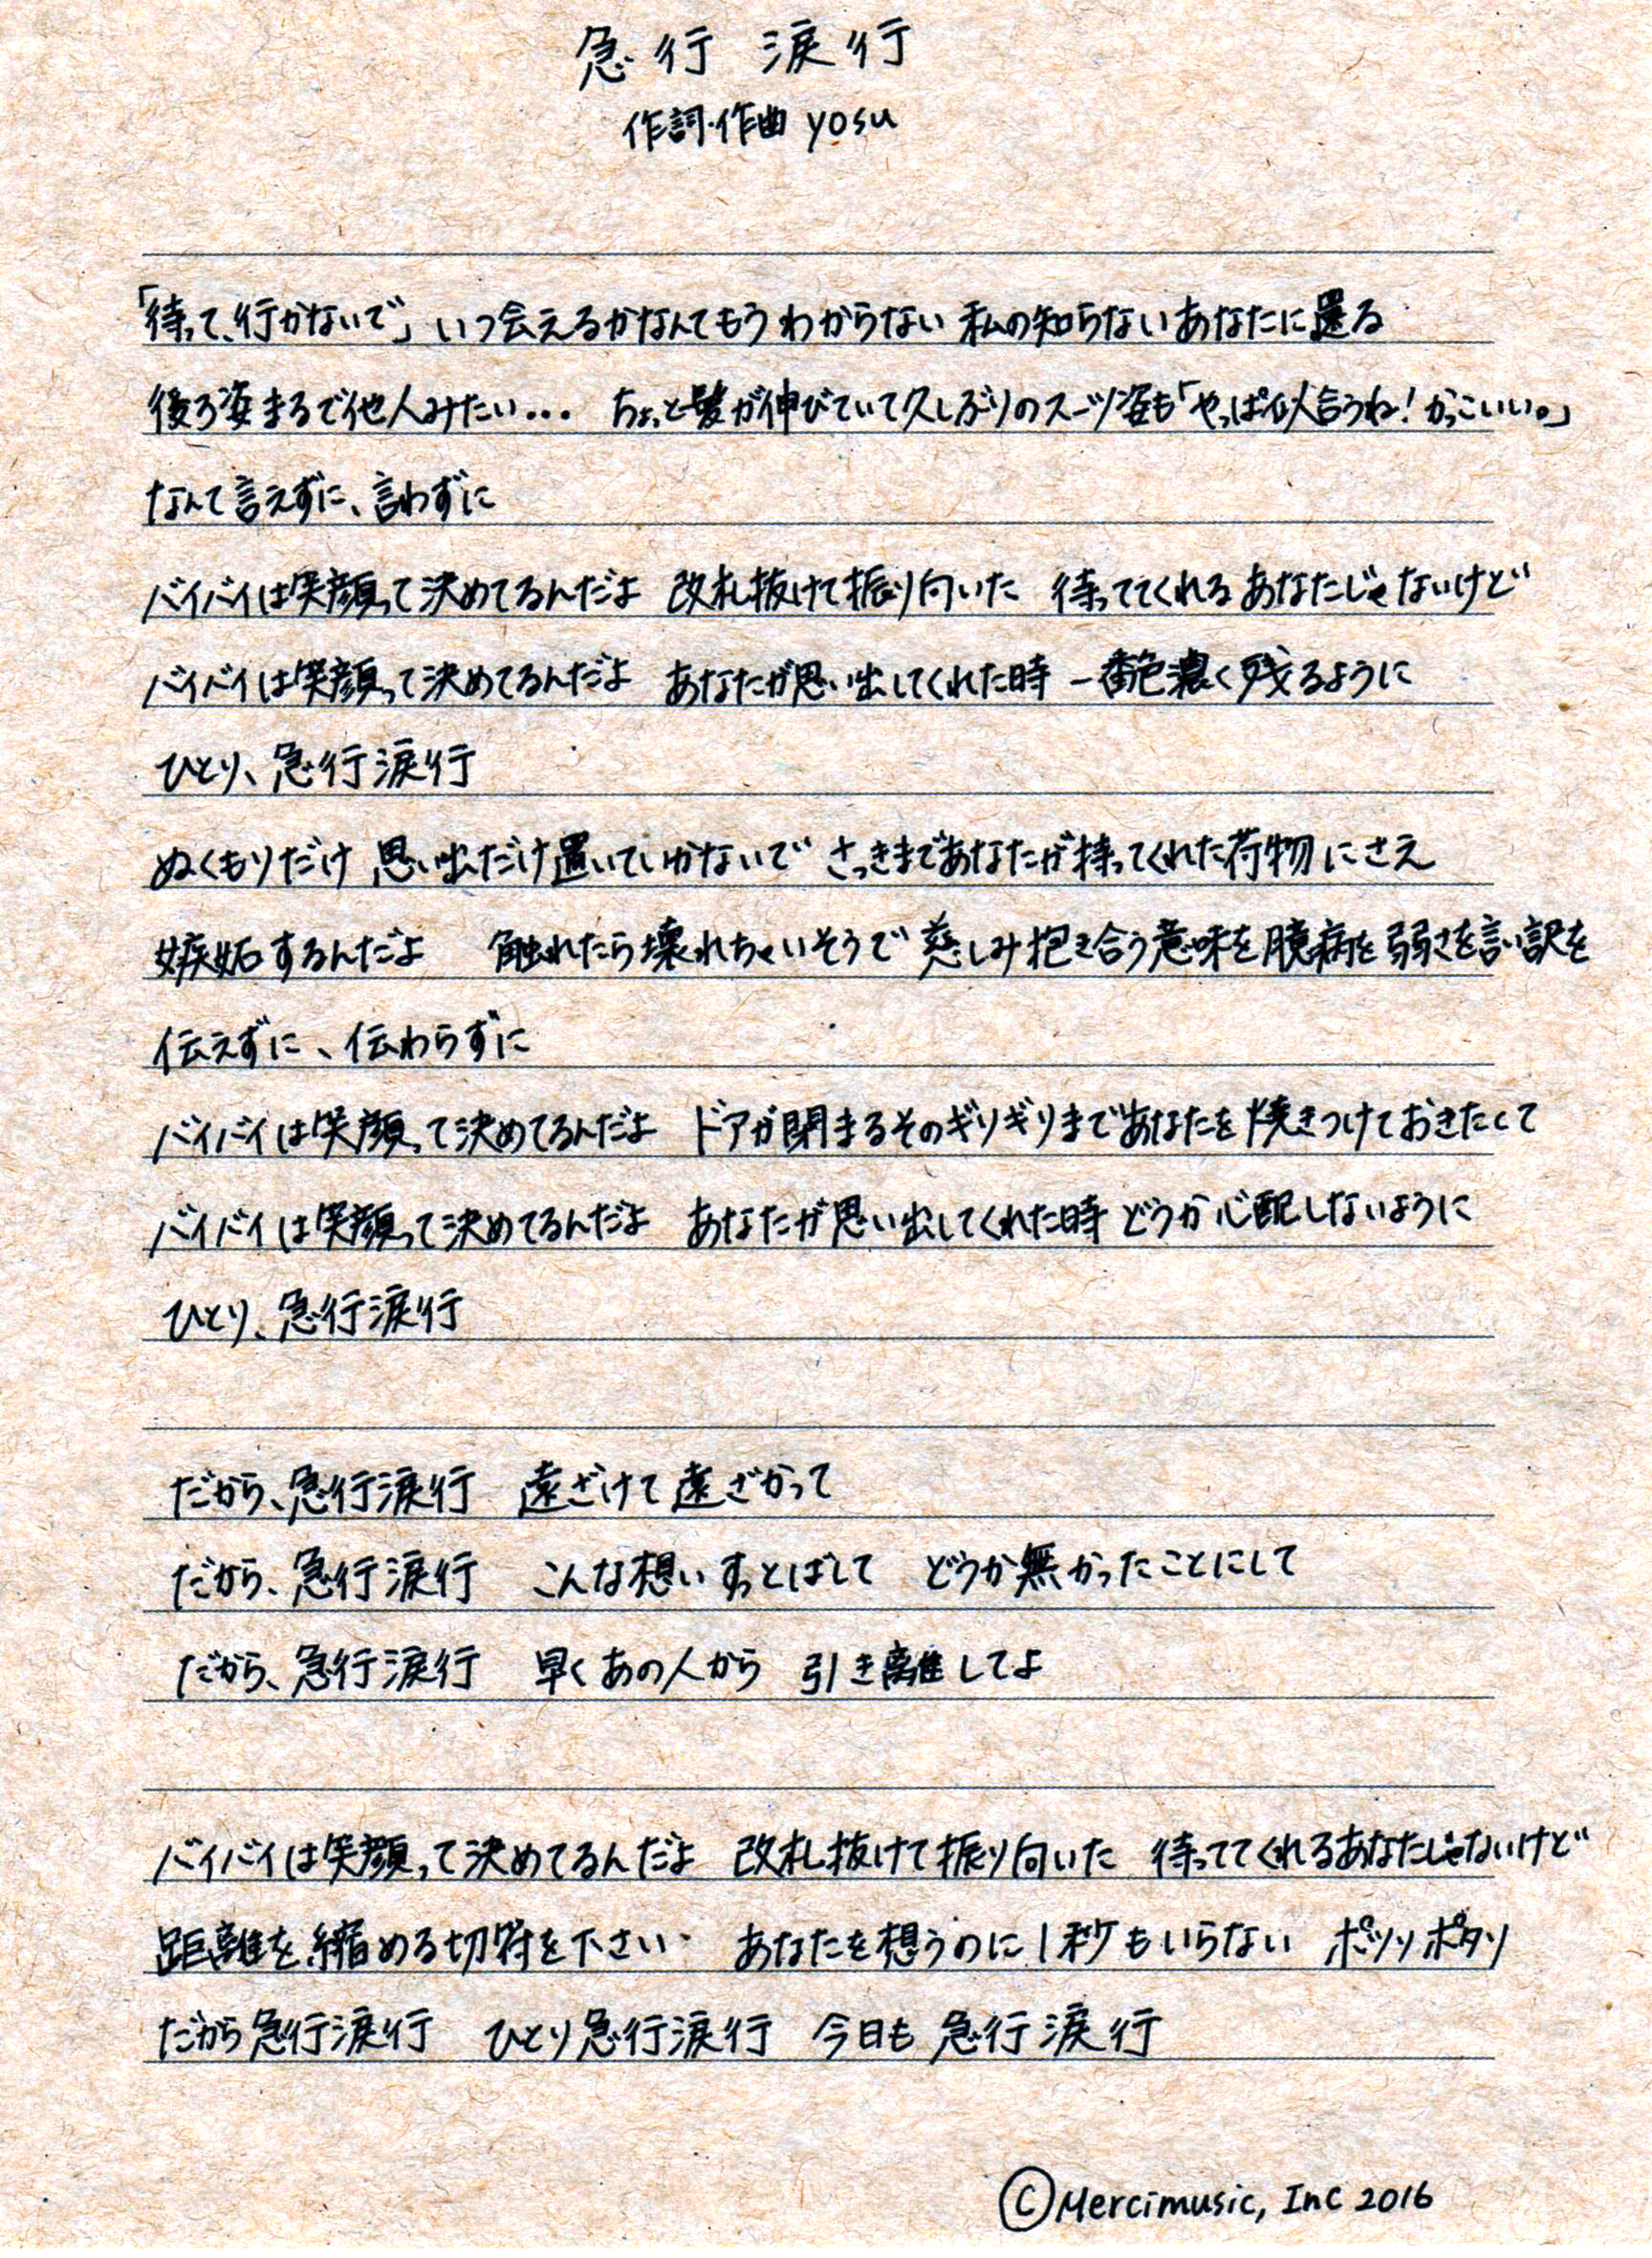 急行 涙行
作詞・作曲 yosu
「待って、行かないで」 いつ会えるかなんてもうわからない 私の知らないあなたに還る
後ろ姿まるで他人みたい… ちょっと髪が伸びていて久しぶりのスーツ姿も「やっぱ似合うね!かっこいい。」
なんて言えずに、言わずに
バイバイは笑顔って決めてるんだよ 改札抜けて振り向いた 待っててくれるあなたじゃないけど
バイバイは笑顔って決めてるんだよ あなたが思い出してくれた時 一番色濃く残るように
ひとり、急行涙行
ぬくもりだけ 思い出だけ置いていかないで さっきまであなたが持ってくれた荷物にさえ
嫉妬するんだよ 触れたら壊れちゃいそうで 慈しみ抱き合う意味を臆病を弱さを言い訳を
伝えずに、伝わらずに
バイバイは笑顔って決めてるんだよ ドアが閉まるそのギリギリまであなたを焼きつけておきたくて
バイバイは笑顔って決めてるんだよ あなたが思い出してくれた時 どうか心配しないように
ひとり、急行涙行
だから、急行涙行 遠ざけて 遠ざかって
だから、急行涙行 こんな想いすっとばして どうか無かったことにして
だから、急行涙行 早くあの人から 引き離してよ
バイバイは笑顔って決めてるんだよ 改札抜けて振り向いた 待っててくれるあなたじゃないけど
距離を縮める切符を下さい あなたを想うのに1秒もいらない ポツリポタリ
だから急行涙行 ひとり急行涙行 今日も 急行涙行
©Mercimusic, Inc 2016